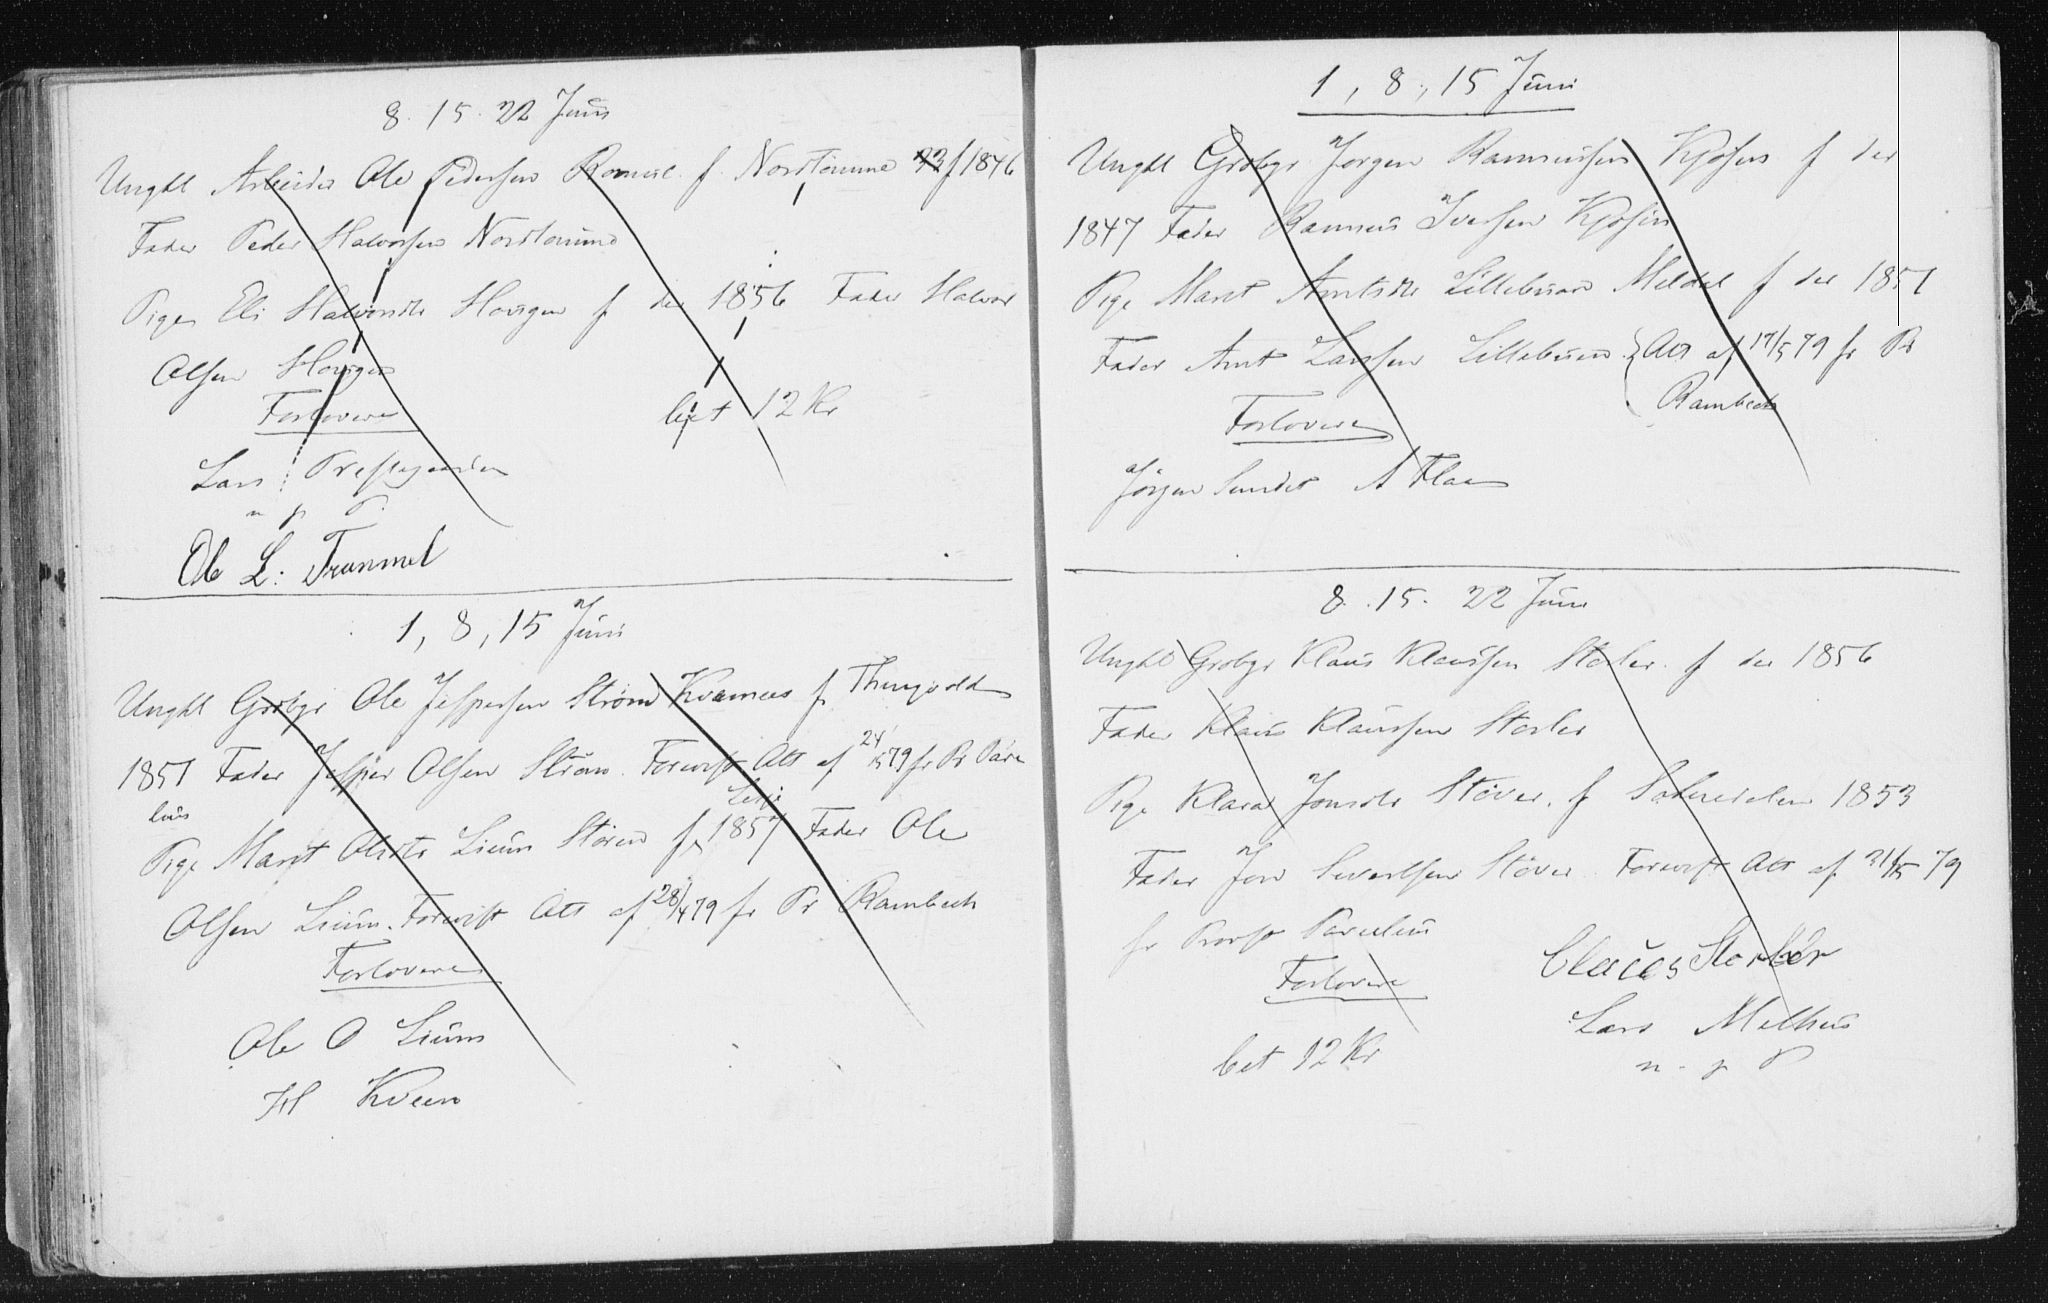 8. 15. 22 Juni
Ungkl Arbeider Ole Pedersen f. Nordtømme f 1846
Fader Peder Halvorsen Nordtømme
Pige Eli Halvorsdtr Hougen f der 1856 Fader Halvor
Olsen Hougen
Forlovere bet 12 Kr
Lars Prestegaarden
m p P.
Ole L: Trammel
1, 8, 15 Juni
Ungkl Grbgr Ole Jespersen Strøm Kvamees f
1851 Fader Jesper Olsen Strøm. Forevist Att af 24/5 79 fr Pr Pare
lius
Pige Marit Olsdtr Lium Støren f 1857 Fader Ole
Olsen Lium. Forevist Att af 28/4 79 fr Pr Rambech
Forlovere
Ole O Lium
H Kveen
1, 8, 15 Juni
Ungkl Grbgr Jørgen Rasmussen Kjøsen f der
1847 Fader Rasmus Iversen Kjøsen
Pige Marit Arntsdtr Lillebuan Meldal f der 1851
Fader Arnt Larssen Lillebuan. Att af 17/5 79 fr Pr
Rambech
Forlovere
Jørgen Sundet A Flaa
8. 15. 22 Juni
Ungkl Grbgr Klaus Klaussen Storler f der 1856
Fader Klaus Klaussen Storler
Pige Klara Jonsdtr Støver. f Soknedalen 1853
Fader Jon Sivertsen Støver Forevist Att af 31/5 79
fr Provst Parelius
Forlovere
Claues Storlër
Lars Melhus
bet 12 Kr
m. p P